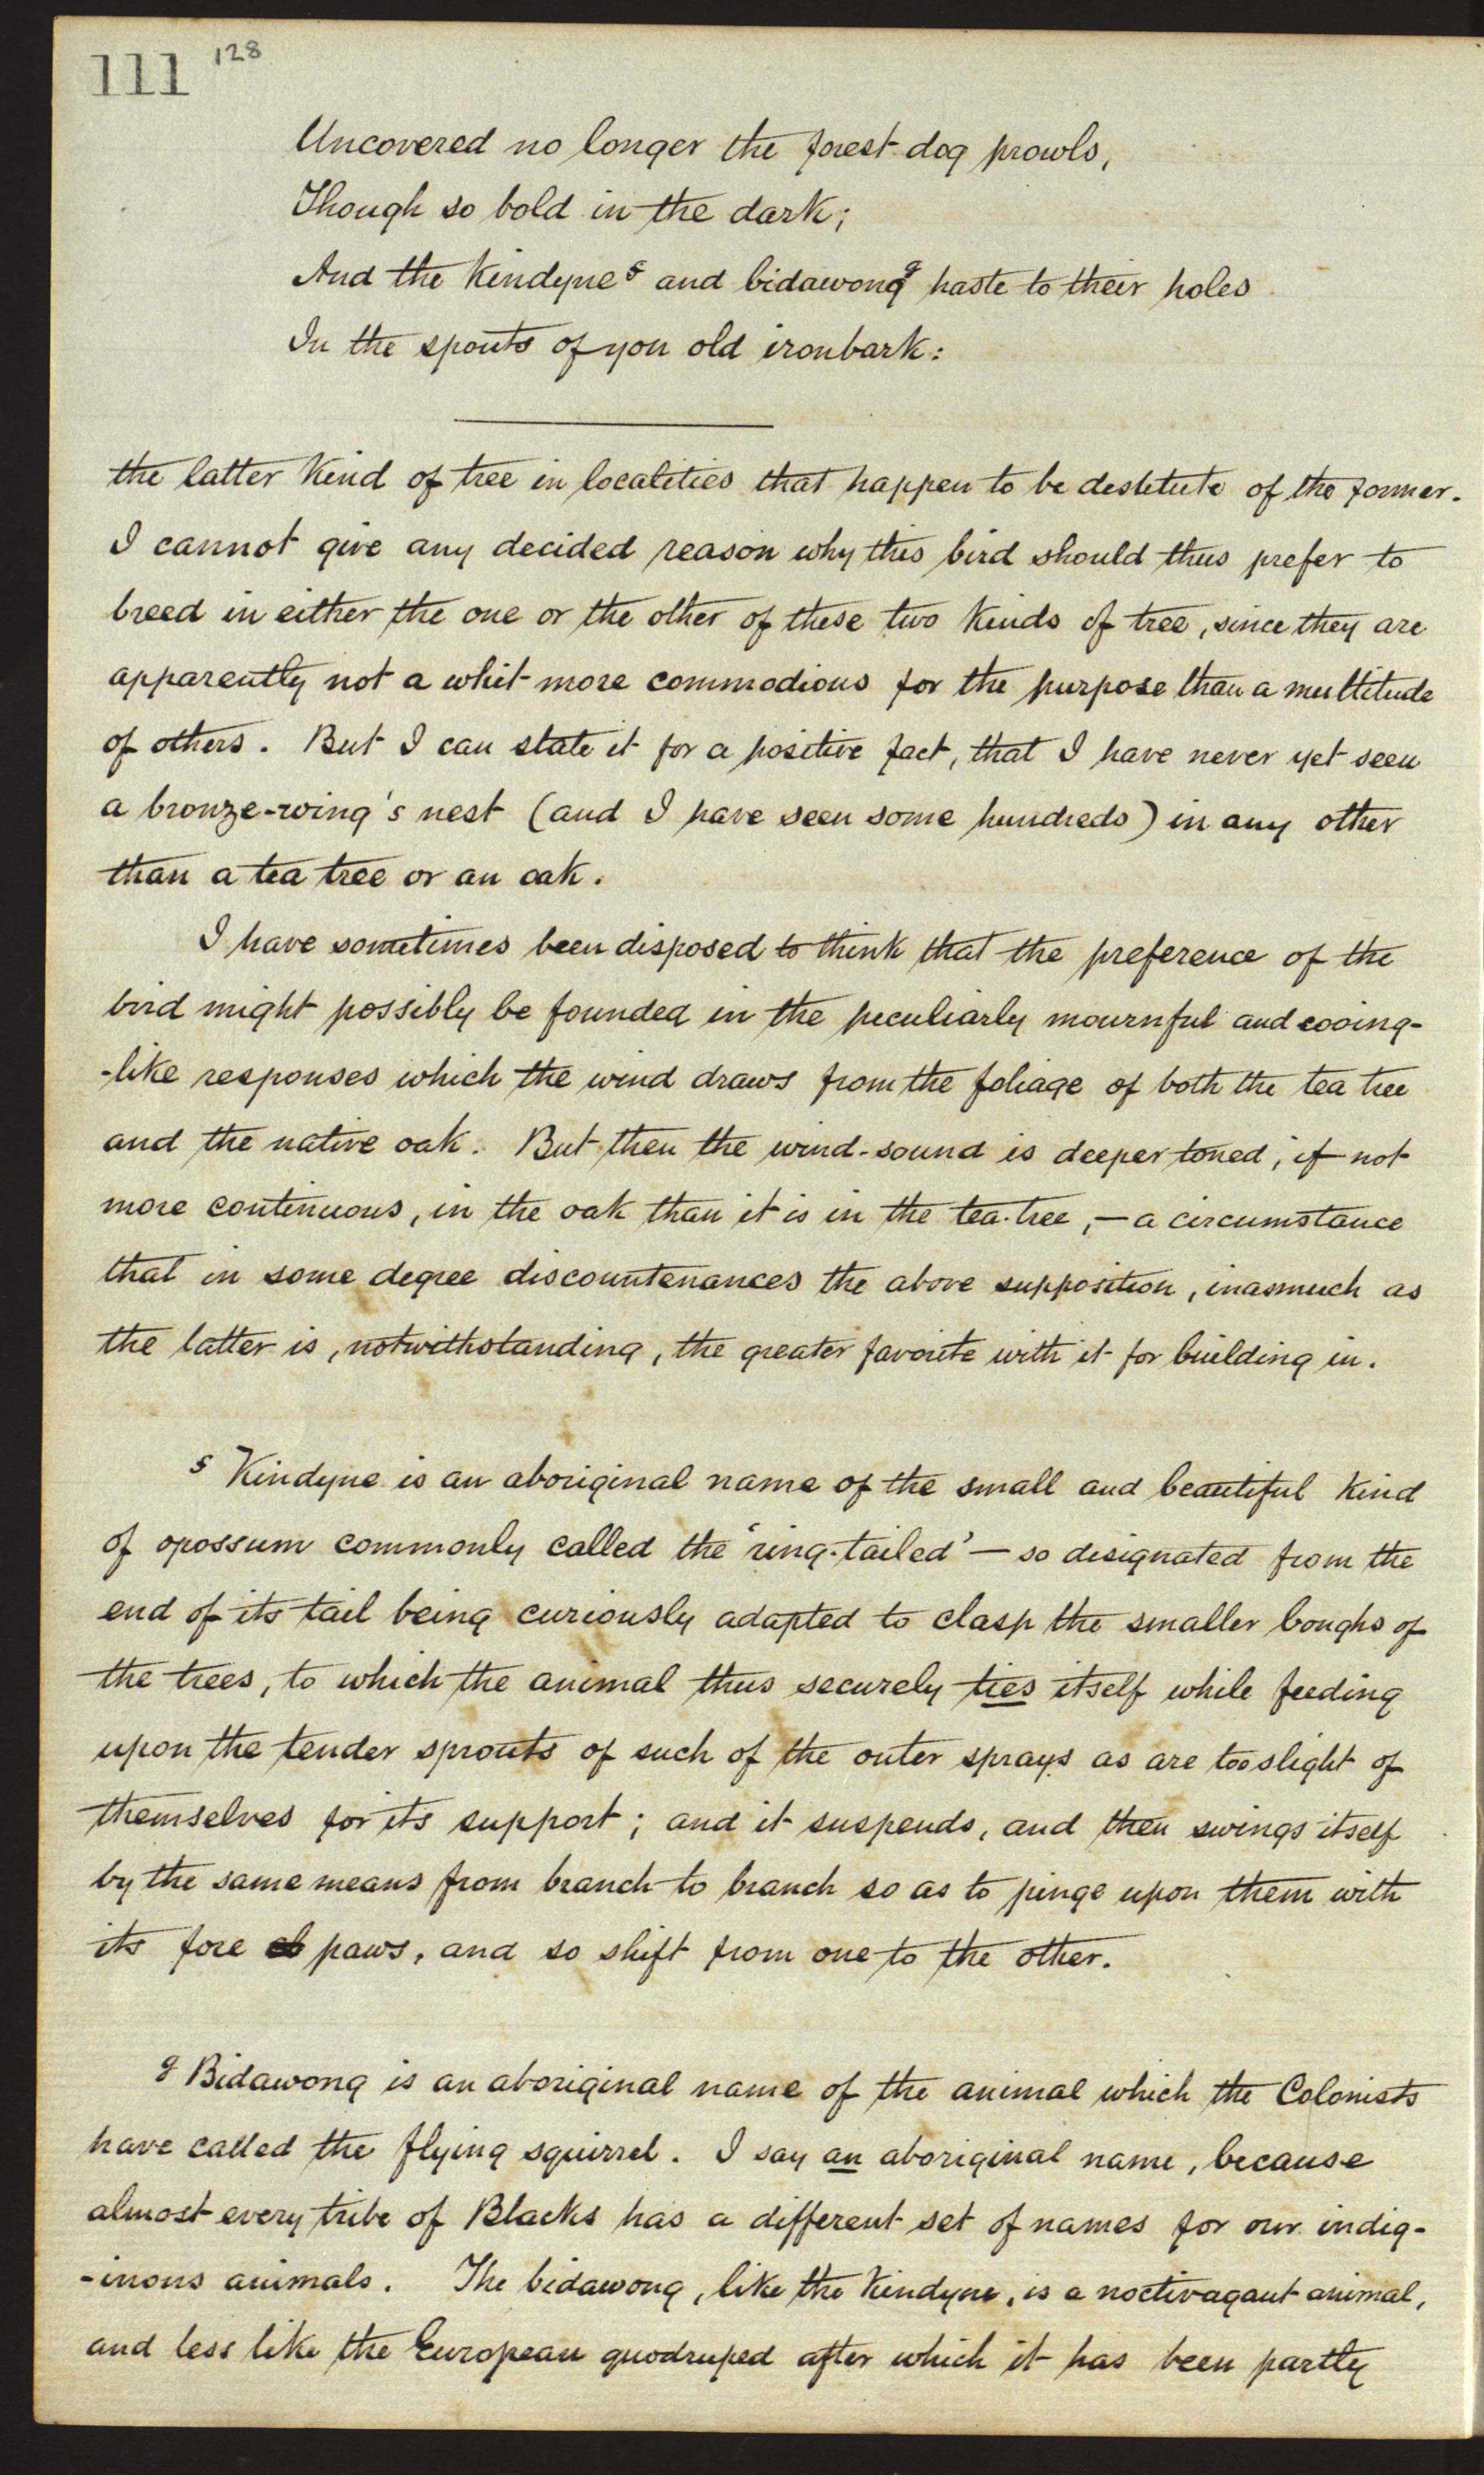 111 128
Uncovered no longer the forest dog prowls,
Though so bold in the dark;
And the Kindyne § and bidawong 9 haste to their holes
In the spouts of yon old ironbark:
the latter Kind of tree in localities that happen to be destitute of the former.
I cannot give any decided reason why this bird should thus prefer to
breed in either the one or the other of these two Kinds of tree, since they are
apparently not a whit more commodious for the purpose than a multitude
of others. But I can state it for a positive fact, that I have never yet seen
a bronze-wing's nest (and I have seen some hundreds) in any other
than a tea tree or an oak.
I have sometimes been disposed to think that the preference of the
bird might possibly be founded in the peculiarly mournful and cooing-
-like responses which the wind draws from the foliage of both the tea tree
and the native oak. But then the wind-sound is deeper toned, if not
more continuous, in the oak than it is in the tea-tree, — a circumstance
that in some degree discountenances the above supposition, inasmuch as
the latter is, notwithstanding, the greater favorite with it for building in.
§ Kindyne is an aboriginal name of the small and beautiful Kind
of opossum commonly called the 'ring-tailed' — so designated from the
end of its tail being curiously adapted to clasp the smaller boughs of
the trees, to which the animal thus securely ties itself while feeding
upon the tender sprouts of such of the outer sprays as are too slight of
themselves for its support; and it suspends, and then swings itself
by the same means from branch to branch so as to pinge upon them with
its fore paws, and so shift from one to the other.
9 Bidawong is an aboriginal name of the animal which the Colonists
have called the flying squirrel. I say an aboriginal name, because
almost every tribe of Blacks has a different set of names for our indig-
-inous animals. The bidawong, like the Kindyne, is a noctivagant animal,
and less like the European quodruped after which it has been partly